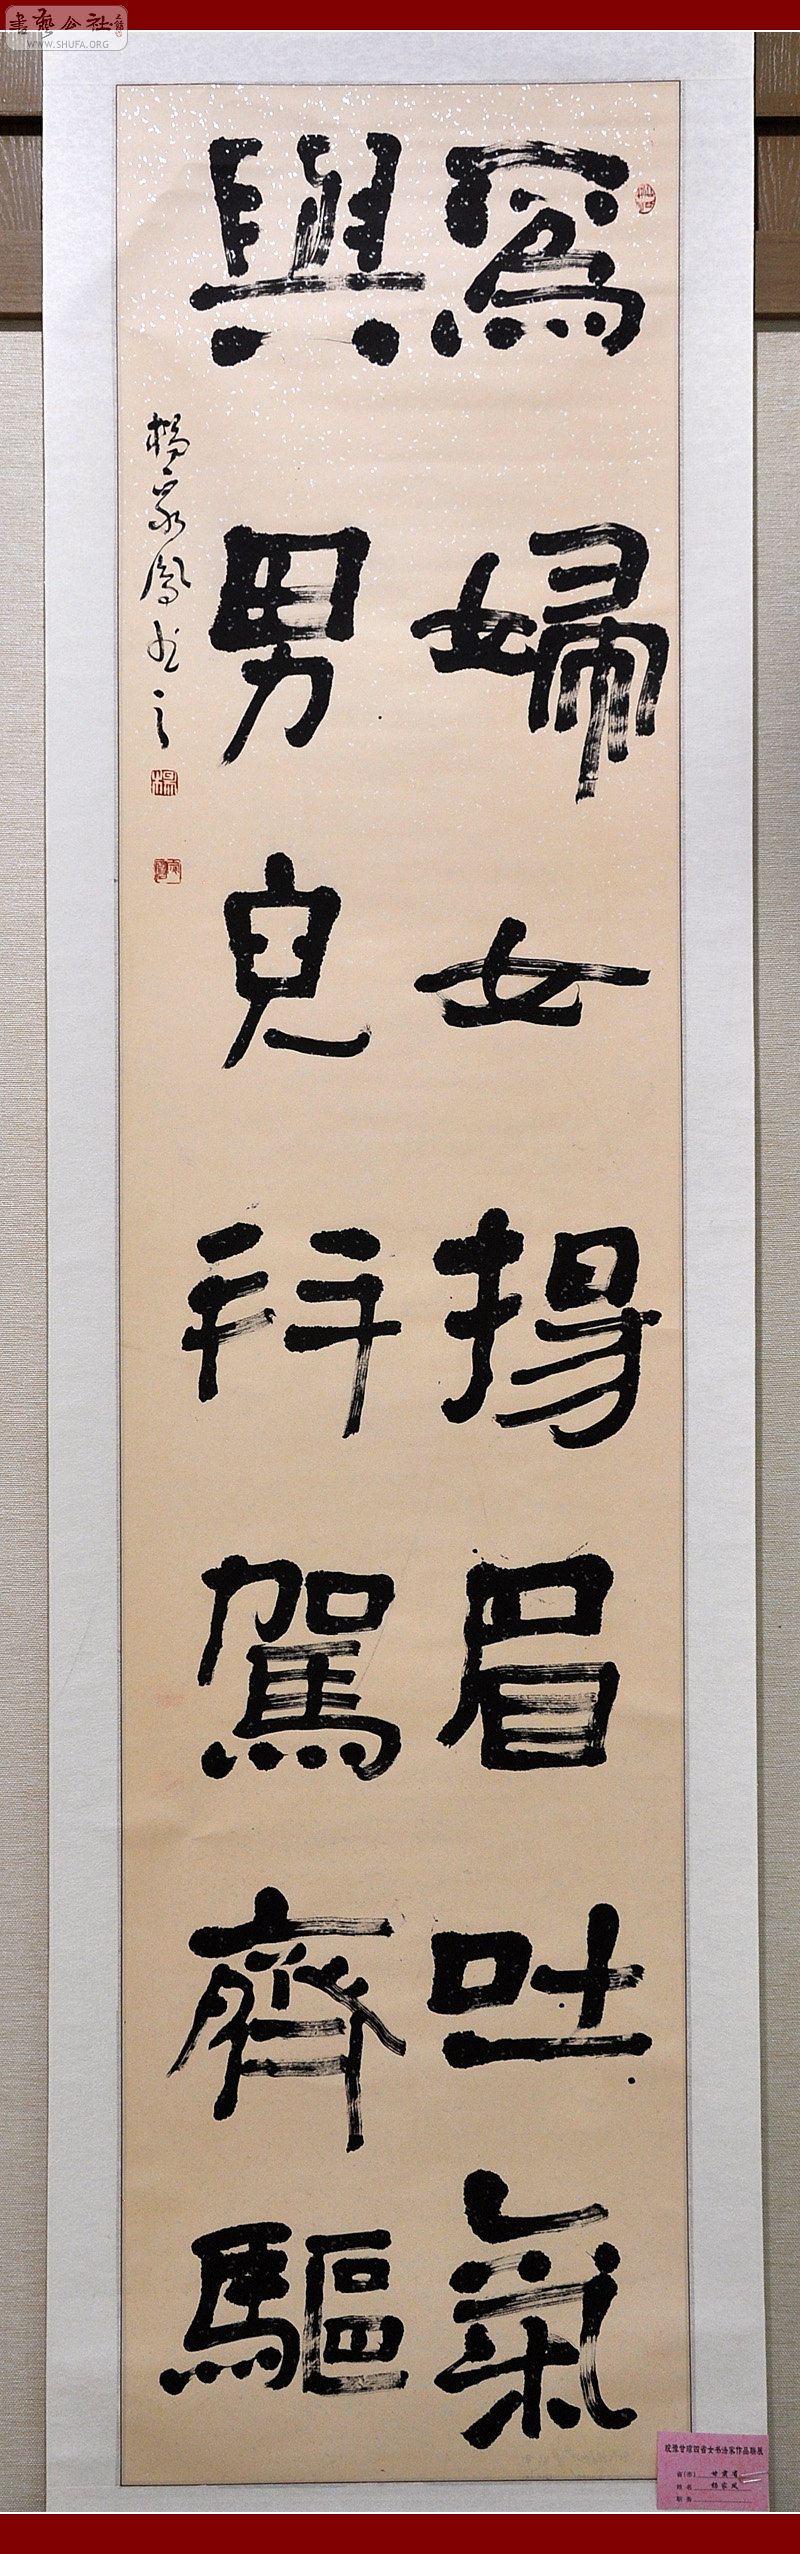 書藝公社
WWW.SHUFA.ORG
為婦女揚眉吐氣
與男兒並駕齊驅
楊家鳳書之
皖豫甘琼四省女书法家作品联展
省(市) 甘肃省
姓名 杨家凤
职务